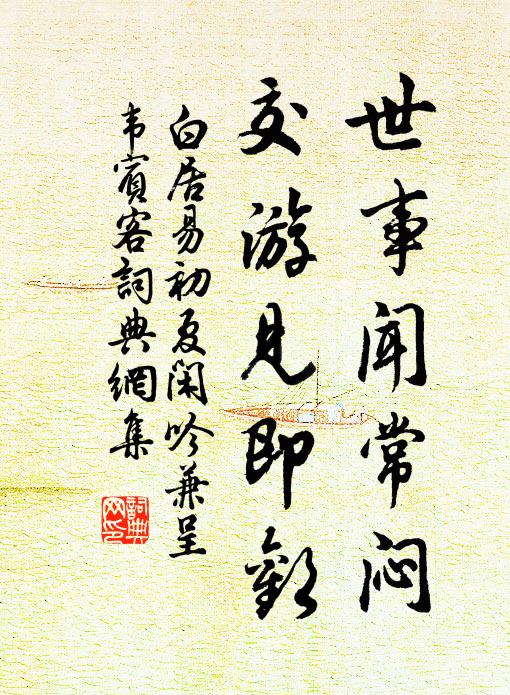 世事闻常闷
交游见即欢
白居易初夏闲吟兼呈
韦賓客詞典網集
詞典網印